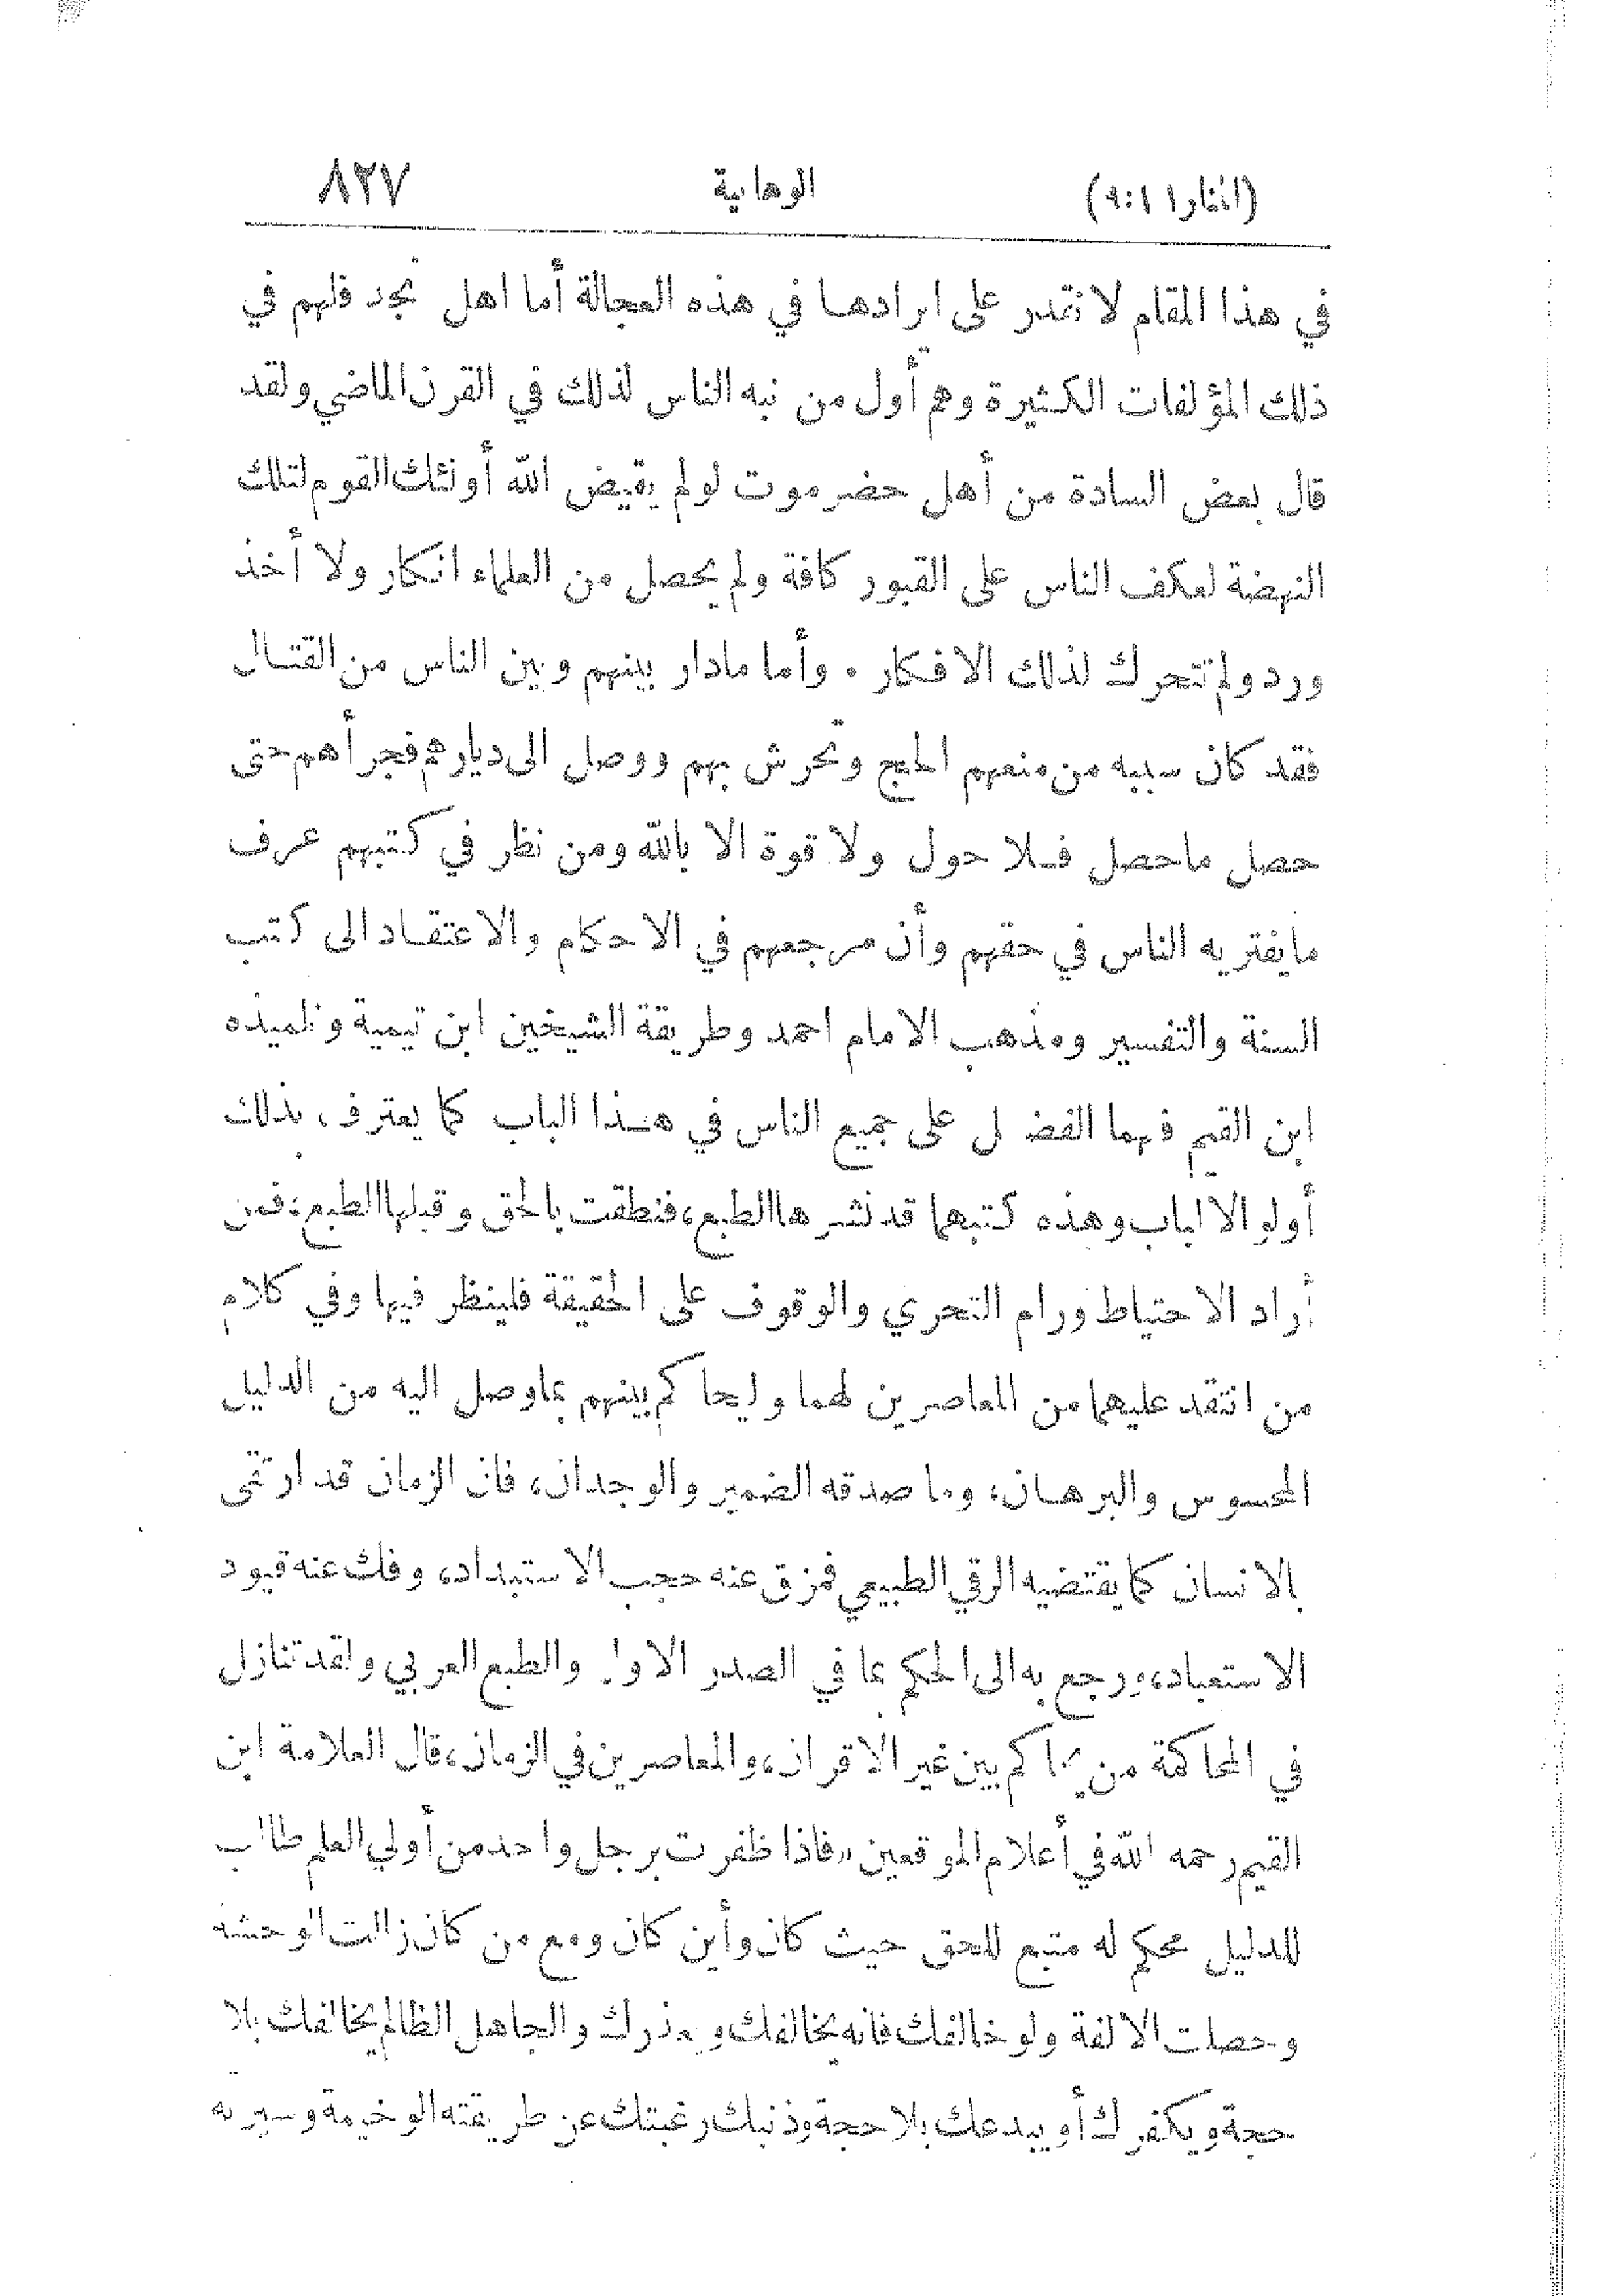 (المنار ١١:٩) الوهابية ٨٢٧
في هذا المقام لا نقدر على ايرادها في هذه العجالة أما اهل نجد فلهم في
ذلك المؤلفات الكثيرة وهم أول من نبه الناس لذلك في القرن الماضي ولقد
قال بعض السادة من أهل حضرموت لو لم يقيض الله أولئك القوم لتلك
النهضة لعكف الناس على القبور كافة ولم يحصل من العلماء انكار ولا أخذ
ورد ولم تتحرك لذلك الافكار . وأما مادار بينهم وبين الناس من القتال
فقد كان سببه من منعهم الحج وتحرش بهم ووصل الى ديارهم فجرأهم حتى
حصل ماحصل فلا حول ولا قوة الا بالله ومن نظر في كتبهم عرف
مايفتريه الناس في حقهم وأن مرجعهم في الاحكام والاعتقاد الى كتب
السنة والتفسير ومذهب الامام احمد وطريقة الشيخين ابن تيمية وتلميذه
ابن القيم فلهما الفضل على جميع الناس في هذا الباب كما يعترف بذلك
أولو الالباب وهذه كتبهما قد نشرها الطبع، فنطقت بالحق وقبلها الطبع، فمن
أراد الاحتياط ورام التحري والوقوف على الحقيقة فلينظر فيها وفي كلام
من انتقد عليهما من المعاصرين لهما وليحاكم بينهم بما وصل اليه من الدليل
المحسوس والبرهان، وما صدقه الضمير والوجدان، فان الزمان قد ارتقى
بالانسان كما يقتضيه الرقي الطبيعي فمزق عنه حجب الاستبداد، وفك عنه قيود
الاستعباد، ورجع به الى الحكم بما في الصدر الاول والطبع العربي ولقد تنازل
في المحاكمة من يحاكم بين غير الاقران، والمعاصرين في الزمان، قال العلامة ابن
القيم رحمه الله في أعلام الموقعين «فاذا ظفرت برجل واحد من أولي العلم طالب
للدليل محكم له متبع للحق حيث كان وأين كان ومع من كان زالت الوحشة
وحصلت الالفة ولو خالفك فانه يخالفك ويعذرك والجاهل الظالم يخالفك بلا
حجة ويكفرك أو يبدعك بلا حجة وذنبك رغبتك عن طريقته الوخيمة وسيرته